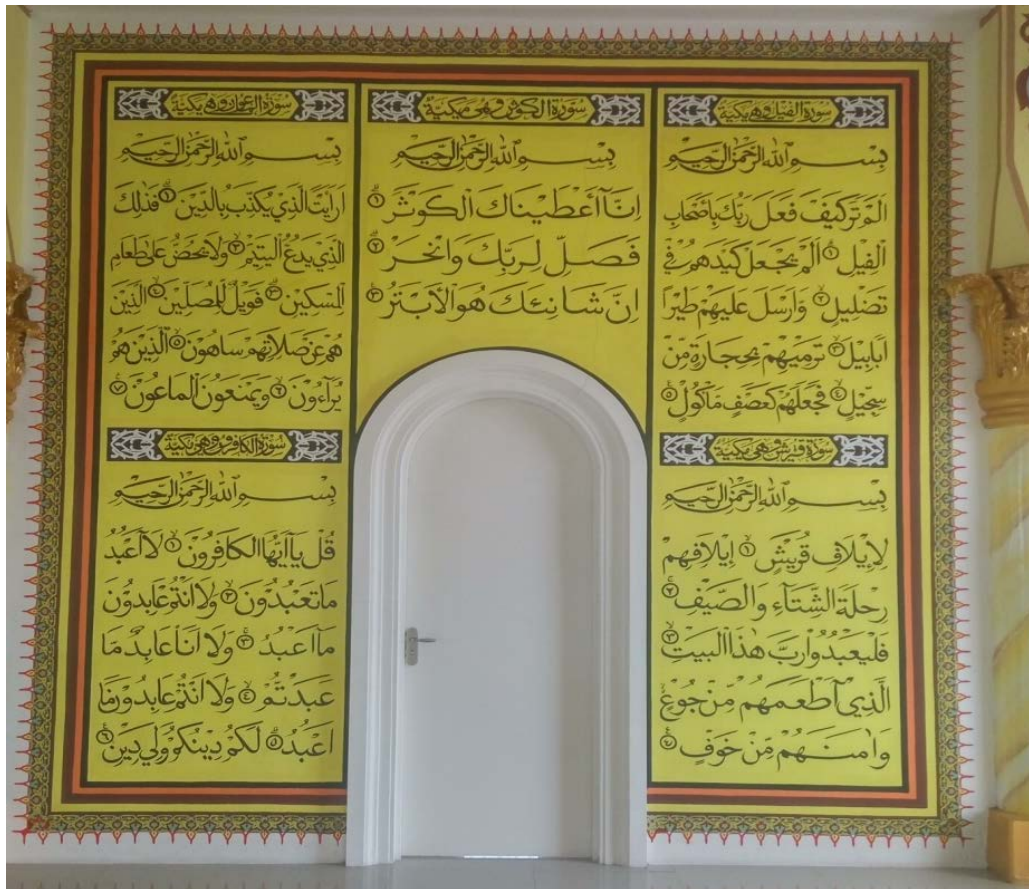 سورة الفيل وهي مكية
بِسْمِ اللهِ الرَّحْمٰنِ الرَّحِيْمِ
اَلَمْ تَرَ كَيْفَ فَعَلَ رَبُّكَ بِاَصْحَابِ
الْفِيْلِ ۝١ اَلَمْ يَجْعَلْ كَيْدَهُمْ فِيْ
تَضْلِيْلٍ ۝٢ وَاَرْسَلَ عَلَيْهِمْ طَيْرًا
اَبَابِيْلَ ۝٣ تَرْمِيْهِمْ بِحِجَارَةٍ مِّنْ
سِجِّيْلٍ ۝٤ فَجَعَلَهُمْ كَعَصْفٍ مَّاْكُوْلٍ ۝٥
سورة قريش وهي مكية
بِسْمِ اللهِ الرَّحْمٰنِ الرَّحِيْمِ
لِاِيْلَافِ قُرَيْشٍ ۝١ اِيْلَافِهِمْ
رِحْلَةَ الشِّتَآءِ وَالصَّيْفِ ۝٢
فَلْيَعْبُدُوْا رَبَّ هٰذَا الْبَيْتِ ۝٣
الَّذِيْٓ اَطْعَمَهُمْ مِّنْ جُوْعٍ
وَاٰمَنَهُمْ مِّنْ خَوْفٍ ۝٤
سورة الكوثر وهي مكية
بِسْمِ اللهِ الرَّحْمٰنِ الرَّحِيْمِ
اِنَّآ اَعْطَيْنَاكَ الْكَوْثَرَ ۝١
فَصَلِّ لِرَبِّكَ وَانْحَرْ ۝٢
اِنَّ شَانِئَكَ هُوَ الْاَبْتَرُ ۝٣
سورة الماعون وهي مكية
بِسْمِ اللهِ الرَّحْمٰنِ الرَّحِيْمِ
اَرَاَيْتَ الَّذِيْ يُكَذِّبُ بِالدِّيْنِ ۝١ فَذٰلِكَ
الَّذِيْ يَدُعُّ الْيَتِيْمَ ۝٢ وَلَا يَحُضُّ عَلٰى طَعَامِ
الْمِسْكِيْنِ ۝٣ فَوَيْلٌ لِّلْمُصَلِّيْنَ ۝٤ الَّذِيْنَ
هُمْ عَنْ صَلَاتِهِمْ سَاهُوْنَ ۝٥ الَّذِيْنَ هُمْ
يُرَآءُوْنَ ۝٦ وَيَمْنَعُوْنَ الْمَاعُوْنَ ۝٧
سورة الكافرون وهي مكية
بِسْمِ اللهِ الرَّحْمٰنِ الرَّحِيْمِ
قُلْ يَآ اَيُّهَا الْكَافِرُوْنَ ۝١ لَآ اَعْبُدُ
مَا تَعْبُدُوْنَ ۝٢ وَلَآ اَنْتُمْ عَابِدُوْنَ
مَآ اَعْبُدُ ۝٣ وَلَآ اَنَا عَابِدٌ مَّا
عَبَدْتُّمْ ۝٤ وَلَآ اَنْتُمْ عَابِدُوْنَ مَآ
اَعْبُدُ ۝٥ لَكُمْ دِيْنُكُمْ وَلِيَ دِيْنِ ۝٦